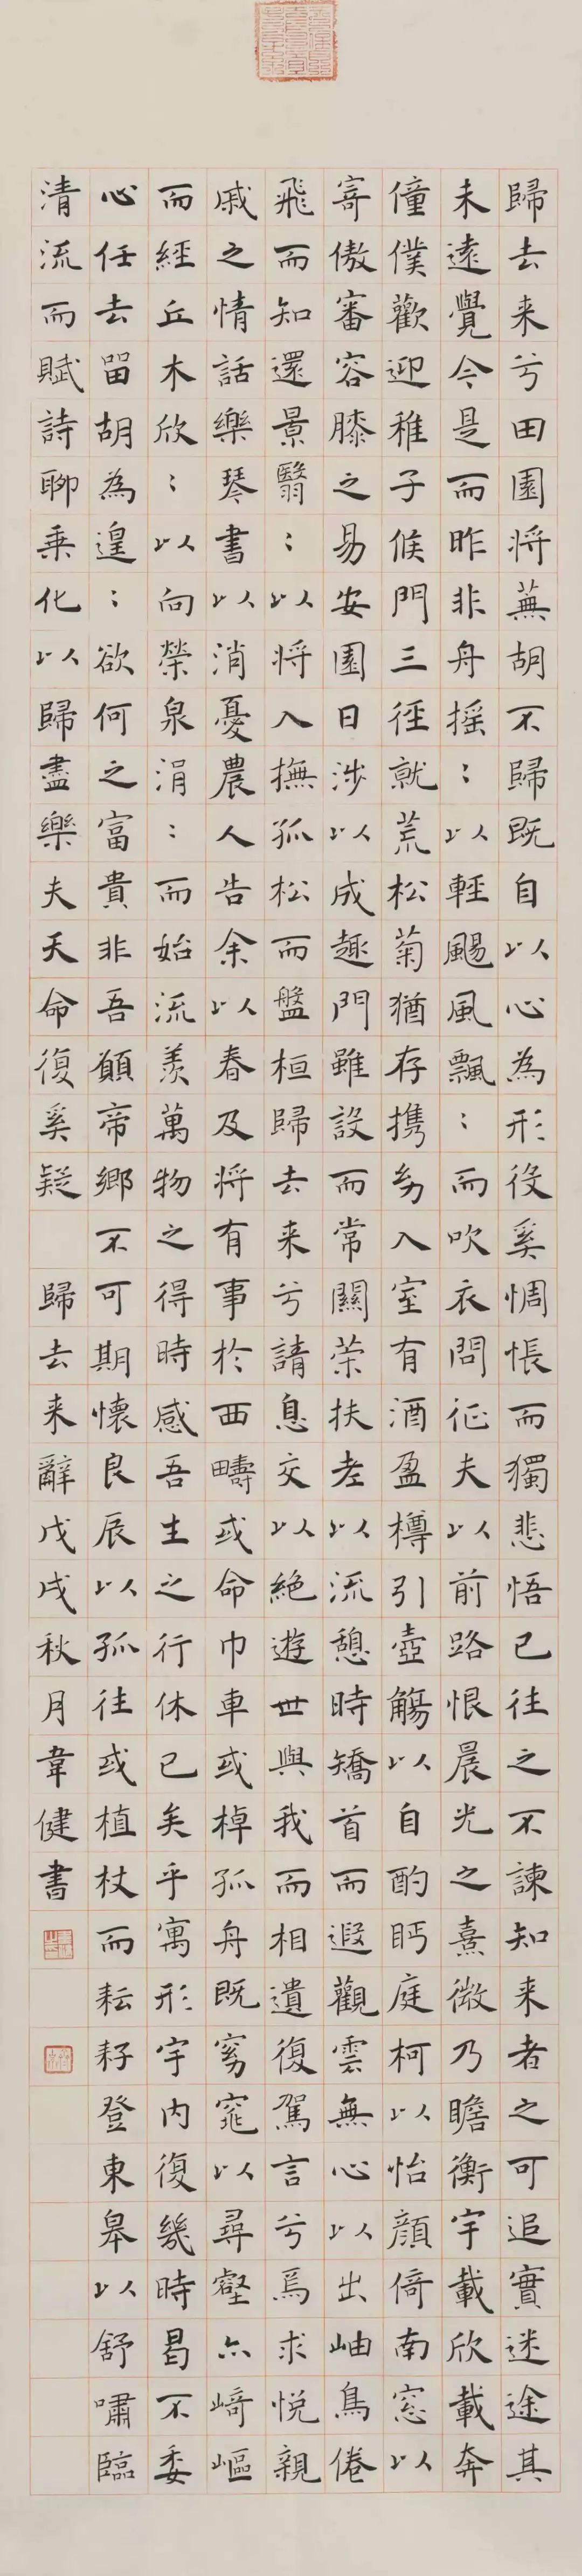 歸去来兮田園将蕪胡不歸既自以心為形役奚惆悵而獨悲悟已往之不諫知来者之可追實迷途其
未遠覺今是而昨非舟摇：以輕颺風飄：而吹衣問征夫以前路恨晨光之熹微乃瞻衡宇載欣載奔
僮僕歡迎稚子候門三徑就荒松菊猶存携幼入室有酒盈樽引壺觴以自酌眄庭柯以怡顔倚南窓以
寄傲審容膝之易安園日涉以成趣門雖設而常關策扶老以流憩時矯首而遐觀雲無心以出岫鳥倦
飛而知還景翳：以将入撫孤松而盤桓歸去来兮請息交以絶遊世與我而相遺復駕言兮焉求悦親
戚之情話樂琴書以消憂農人告余以春及将有事於西疇或命巾車或棹孤舟既窈窕以尋壑亦崎嶇
而經丘木欣：以向榮泉涓：而始流羡萬物之得時感吾生之行休已矣乎寓形宇内復幾時曷不委
心任去留胡為遑：欲何之富貴非吾願帝鄉不可期懷良辰以孤往或植杖而耘耔登東皋以舒嘯臨
清流而賦詩聊乗化以歸盡樂夫天命復奚疑 歸去来辭戊戌秋月韋健書